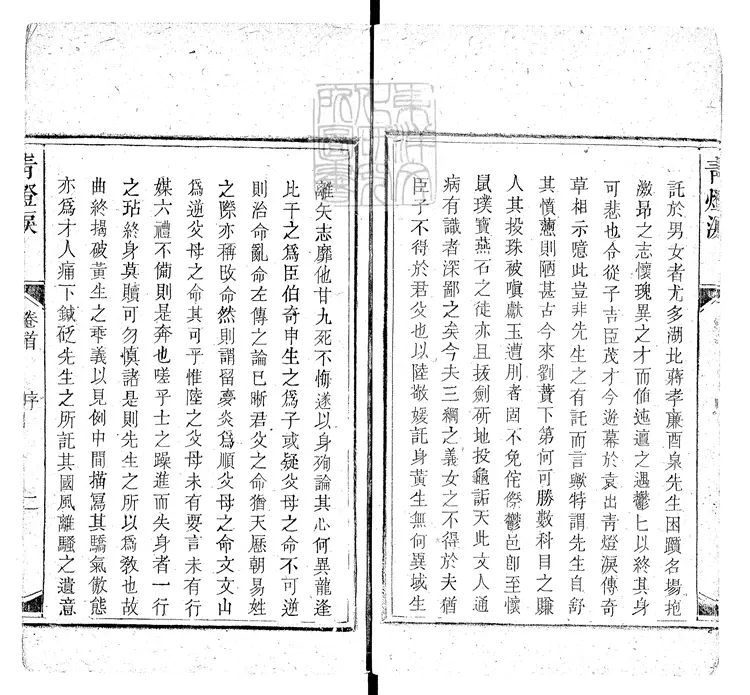 託於男女者尤多湖北蔣孝廉酉泉先生困躓名場抱
激昂之志懷瑰異之才而値迍邅之遇鬱匕以終其身
可悲也令從子吉臣茂才今遊幕於袁出靑燈淚傳奇
草相示噫此豈非先生之有託而言歟特謂先生自舒
其憤懣則陋甚古今來劉蕡下第何可勝數科目之賺
人其投珠被嗔獻玉遭刖者固不免侘傺鬱邑卽至懷
鼠璞寶燕石之徒亦且拔劍斫地投龜詬天此文人通
病有識者深鄙之矣今夫三綱之義女之不得於夫猶
臣子不得於君父也以陸敬媛託身黃生無何異域生
靑燈淚
離矢志靡他甘九死不悔遂以身殉論其心何異龍逢
比干之爲臣伯奇申生之爲子或疑父母之命不可逆
則治命亂命左傳之論已晰君父之命猶天厯朝易姓
之際亦稱改命然則謂留夢炎爲順父母之命文文山
爲逆父母之命其可乎惟陸之父母未有要言未有行
媒六禮不備則是奔也嗟乎士之躁進而失身者一行
之玷終身莫贖可勿愼諸是則先生之所以爲敎也故
曲終搗破黃生之乖義以見例中間描寫其驕氣傲態
亦爲才人痛下鍼砭先生之所託其國風離騷之遺意
靑燈淚
卷首
序
二